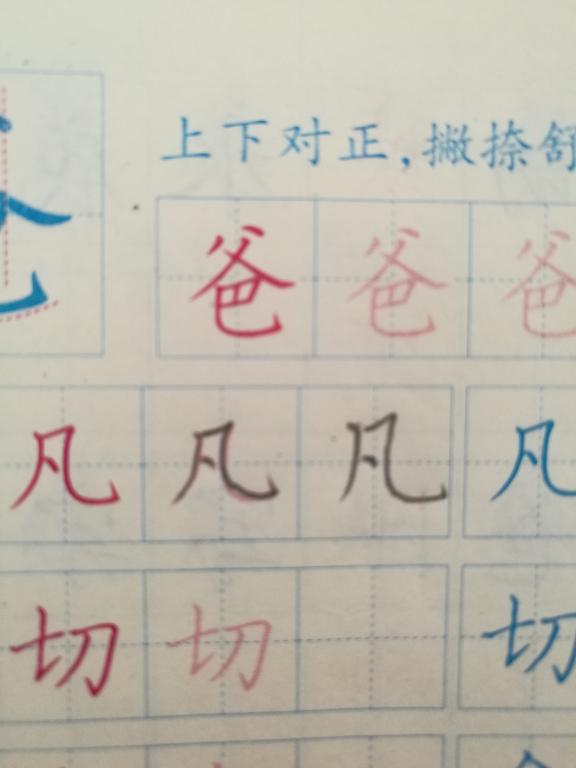 上下对正,撇捺舒
爸 爸 爸
凡 凡 凡 凡
切 切 切